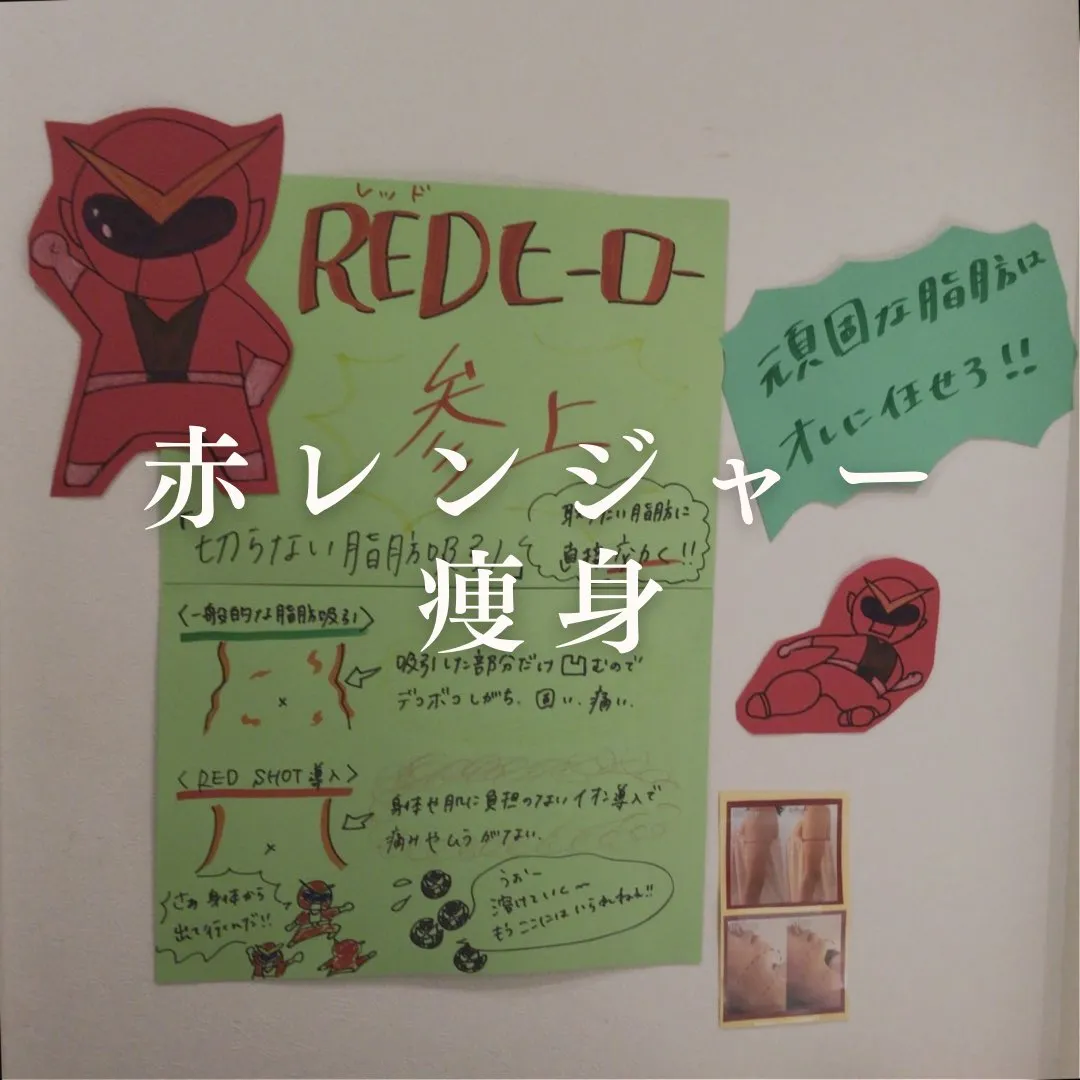 レッド
REDヒーロー
参上
頑固な脂肪は
オレに任せろ!!
赤レンジャー
痩身
「切らない脂肪吸引」
取りたい脂肪に
直接
<一般的な脂肪吸引>
吸引した部分だけ凹むので
デコボコしがち、固い、痛い。
<RED SHOT導入>
身体や肌に負担のないイオン導入で
痛みやムラがない。
さぁ 身体から
出て行くんだ!!
うぉ〜
溶けていく〜
もうここにはいられねぇ!!